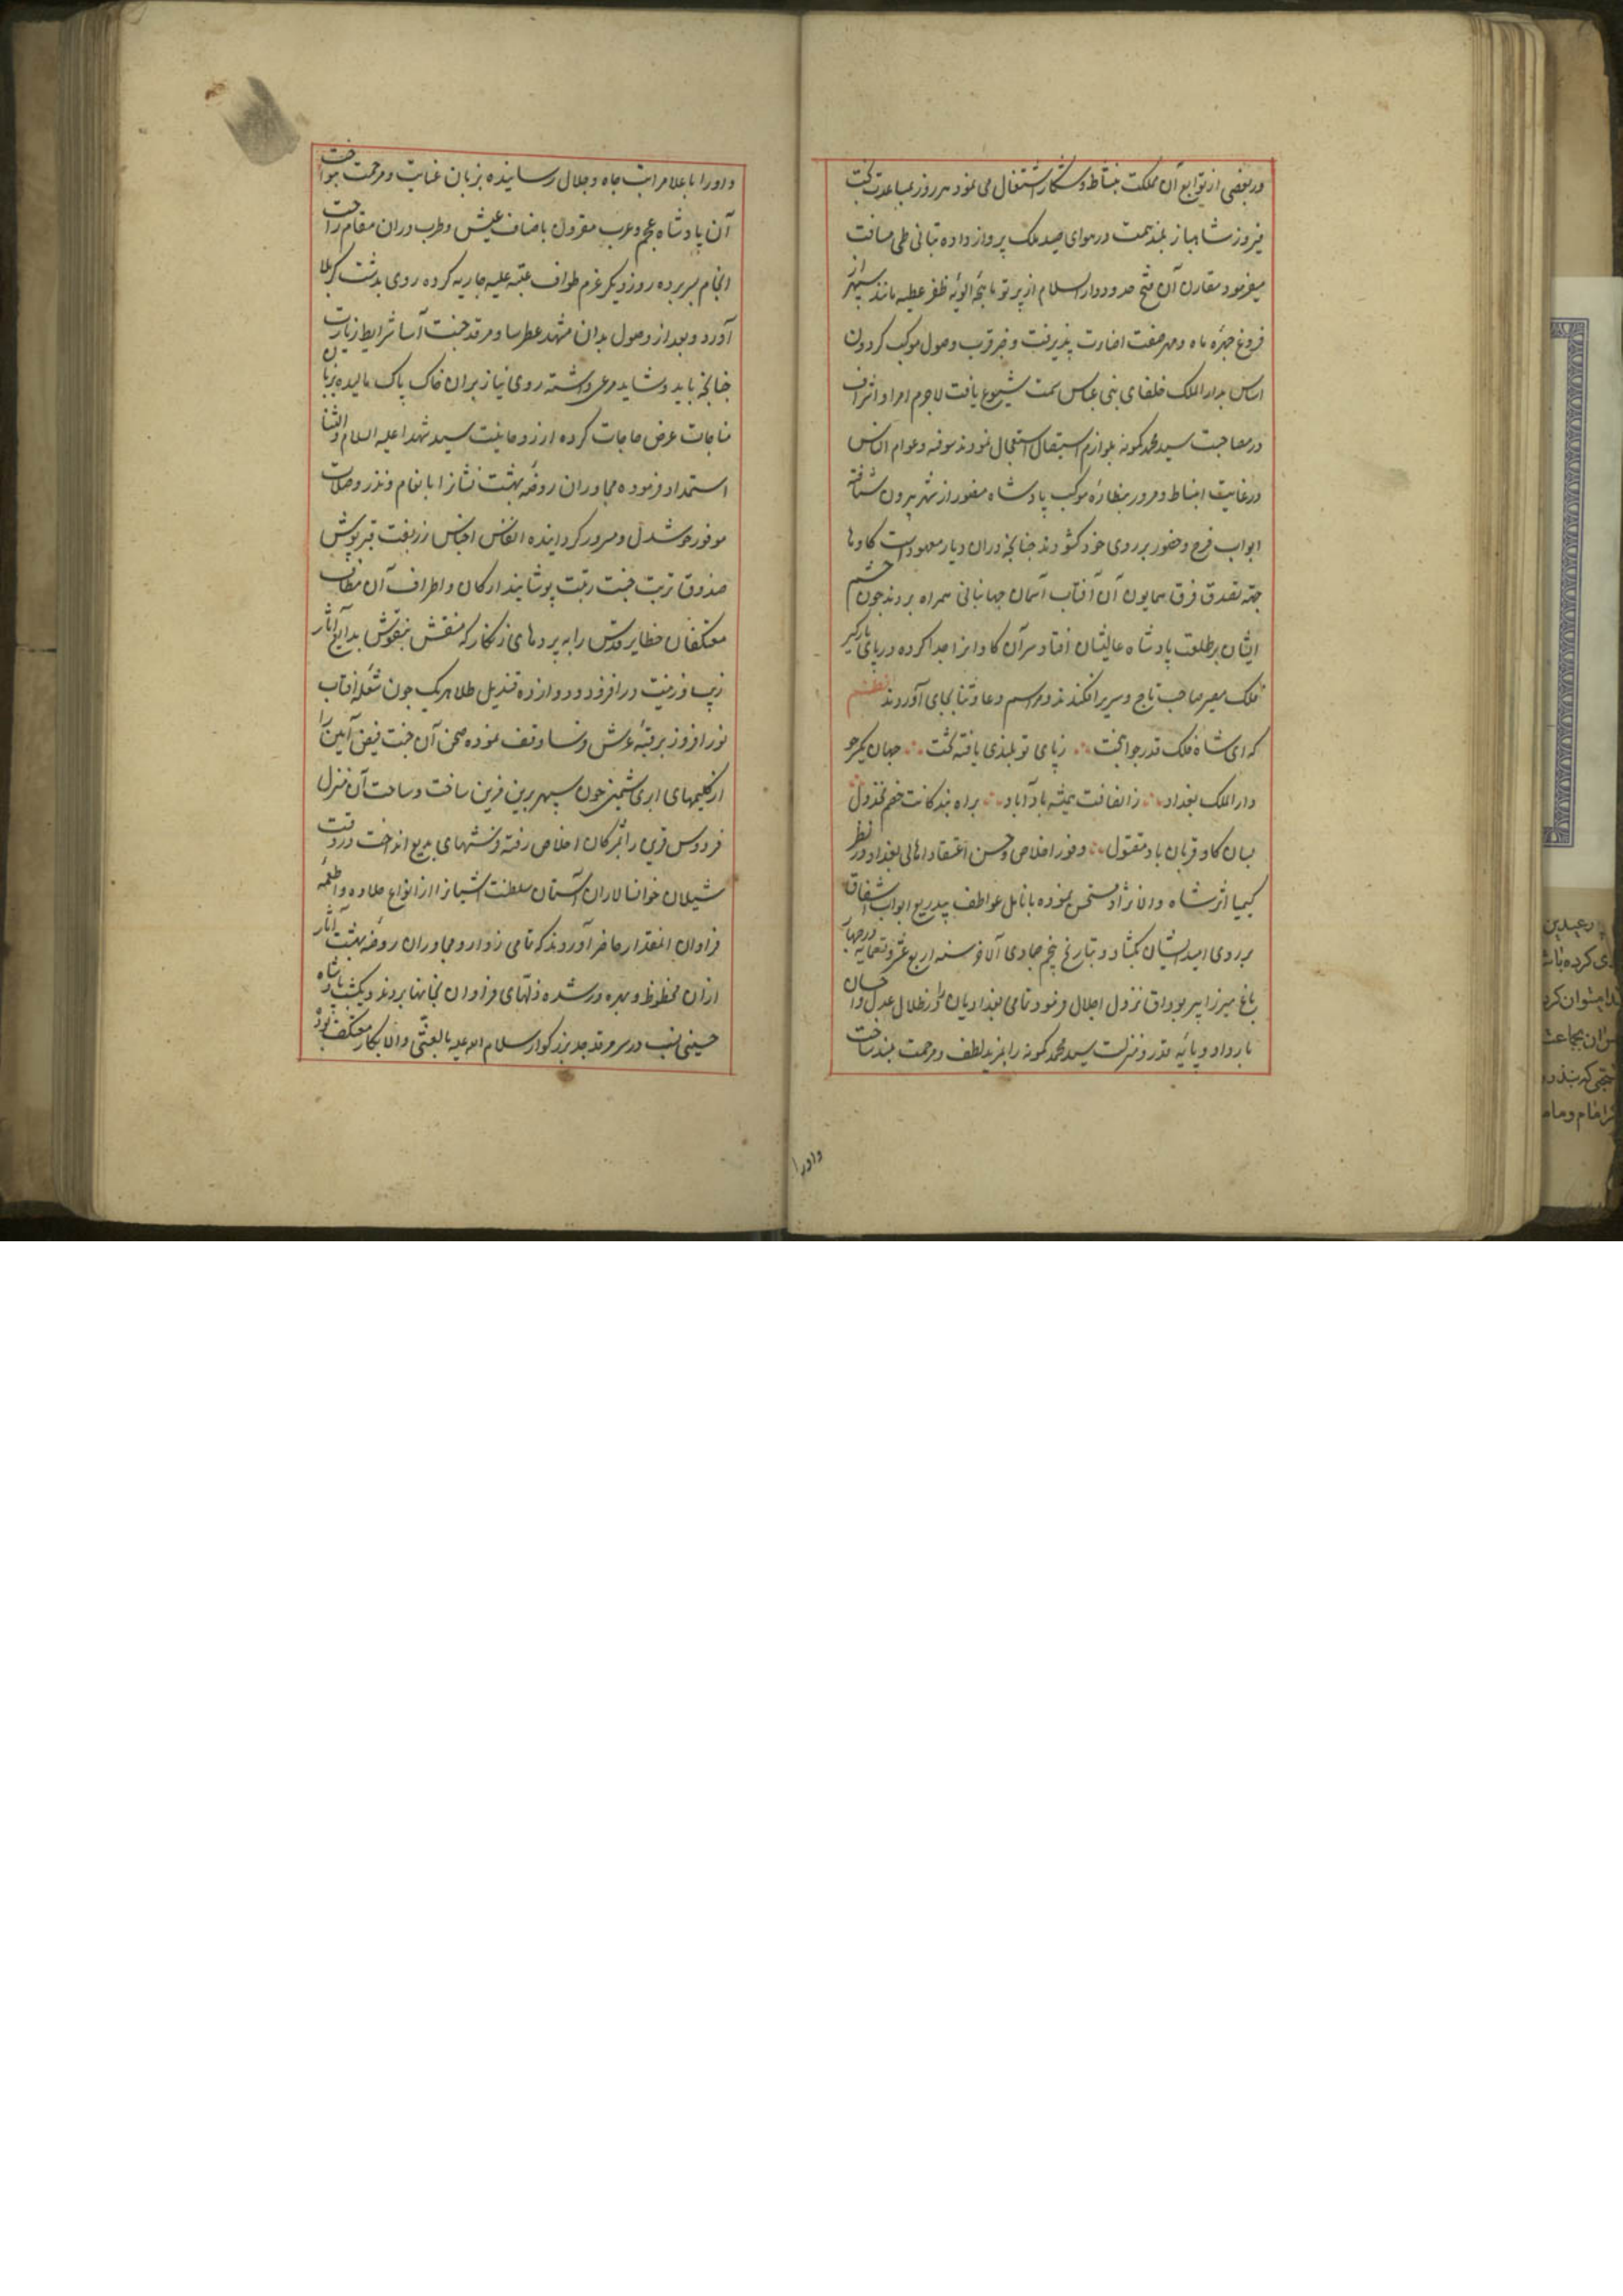 در بعضی از توابع آن مملکت بنشاط و شکار اشتغال می نمود هر روز بمساعدت بخت
فیروز شاهباز بلند همت در هوای صید ملک پرواز داده بتانی طی مسافت
میفرمود مقارن آن فتح حدود دار السلام از پرتو ماهچه الویه ظفر عطیه مانند سپهر از
فروغ چهره ماه و مهر صفت اضاءت پذیرفت و خبر قرب وصول موکب کردون
اساس بدار الملک خلفای بنی عباس سمت شیوع یافت لاجرم امرا و اشراف
در مصاحبت سید محمد کمونه بلوازم استقبال استعجال نمودند سوقه و عوام الناس
در غایت انبساط و سرور بنظاره موکب پادشاه مغفور از شهر بیرون شتافته
ابواب فرح و حضور بر روی خود کشودند چنانچه دران دیار معهودست کاوها
جهة تصدق فرق همایون آن آفتاب آسمان جهانبانی همراه بردند چون چشم
ایشان بر طلعت پادشاه عالیشان افتاد سر آن کاوانرا جدا کرده در پای بارکیر
فلک مسیر صاحب تاج و سریر افکندند و مراسم دعا و ثنا بجای آوردند نظم
که ای شاه فلک قدر جوانبخت زپای تو بلندی یافته تخت جهان یکسر چو
دار الملک بغداد ز انصافت همیشه باد آباد براه بندکانت خصم مخذول
بسان کاو قربان باد مقتول وفور اخلاص و حسن اعتقاد اهالی بغداد در نظر
کیمیا اثر شاه والا نژاد مستحسن نموده بانامل عواطف بیدریغ ابواب اشفاق
بر روی امید ایشان بکشاد و بتاریخ پنجم جمادی الاخر سنه اربع عشر و تسعمایه در چهار
باغ میرزا پیر بوداق نزول اجلال فرمود و تمامی بغدادیان را در ظلال عدل و احسان
بار داد و پایه قدر و منزلت سید محمد کمونه را بمزید لطف و مرحمت بلند ساخت
و اورا
و اورا باعلا مراتب جاه و جلال رسانیده بزبان عنایت و مرحمت بنواخت
آن پادشاه عجم و عرب مقرون باصناف عیش و طرب دران مقام راحت
انجام بسر برده روز دیکر عزم طواف عتبه علیه حایریه کرده روی بدشت کربلا
آورد و بعد از وصول بدان مشهد عطرسا و مرقد جنت آسا شرایط زیارت
چنانچه باید و شاید مرعی داشته روی نیاز بران خاک پاک مالیده بزبان
مناجات عرض حاجات کرده از روحانیت سید شهدا علیه السلام و الثنا
استمداد فرموده مجاوران روضه بهشت نشانرا بانعام و نذر و صلات
موفور خوشدل و مسرور کردانیده انفس اجناس زربفت قبرپوش
صندوق تربت جنت رتبت پوشانید ارکان و اطراف آن مطاف
معتکفان حظایر قدس را به پردهای زرنکار که منقش بنقوش بدایع آثار
زیب و زینت در افزود و دوازده قندیل طلا هریک چون شعله آفتاب
نور افروز بر قبه عرش فرسا وقف نموده صحن آن جنت فیض آیین را
از کلیمهای ابریشمین چون سپهر برین مزین ساخت و ساحت آن منزل
فردوس قرین را بمژکان اخلاص رفته فرشهای بدیع انداخت در وقت
شیلان خوانسالاران آستان سلطنت آشیان از انواع حلاوه و اطعمه
فراوان آنمقدار حاضر آوردند که تمامی زوار و مجاوران روضه بهشت آثار
ازان محظوظ و بهره ور شده زلهای فراوان بخانها بردند و یکشب پادشاه
حسینی نسب در سر مرقد جد بزرکوار سلام الله علیه بالعشی و الابکار معتکف بود